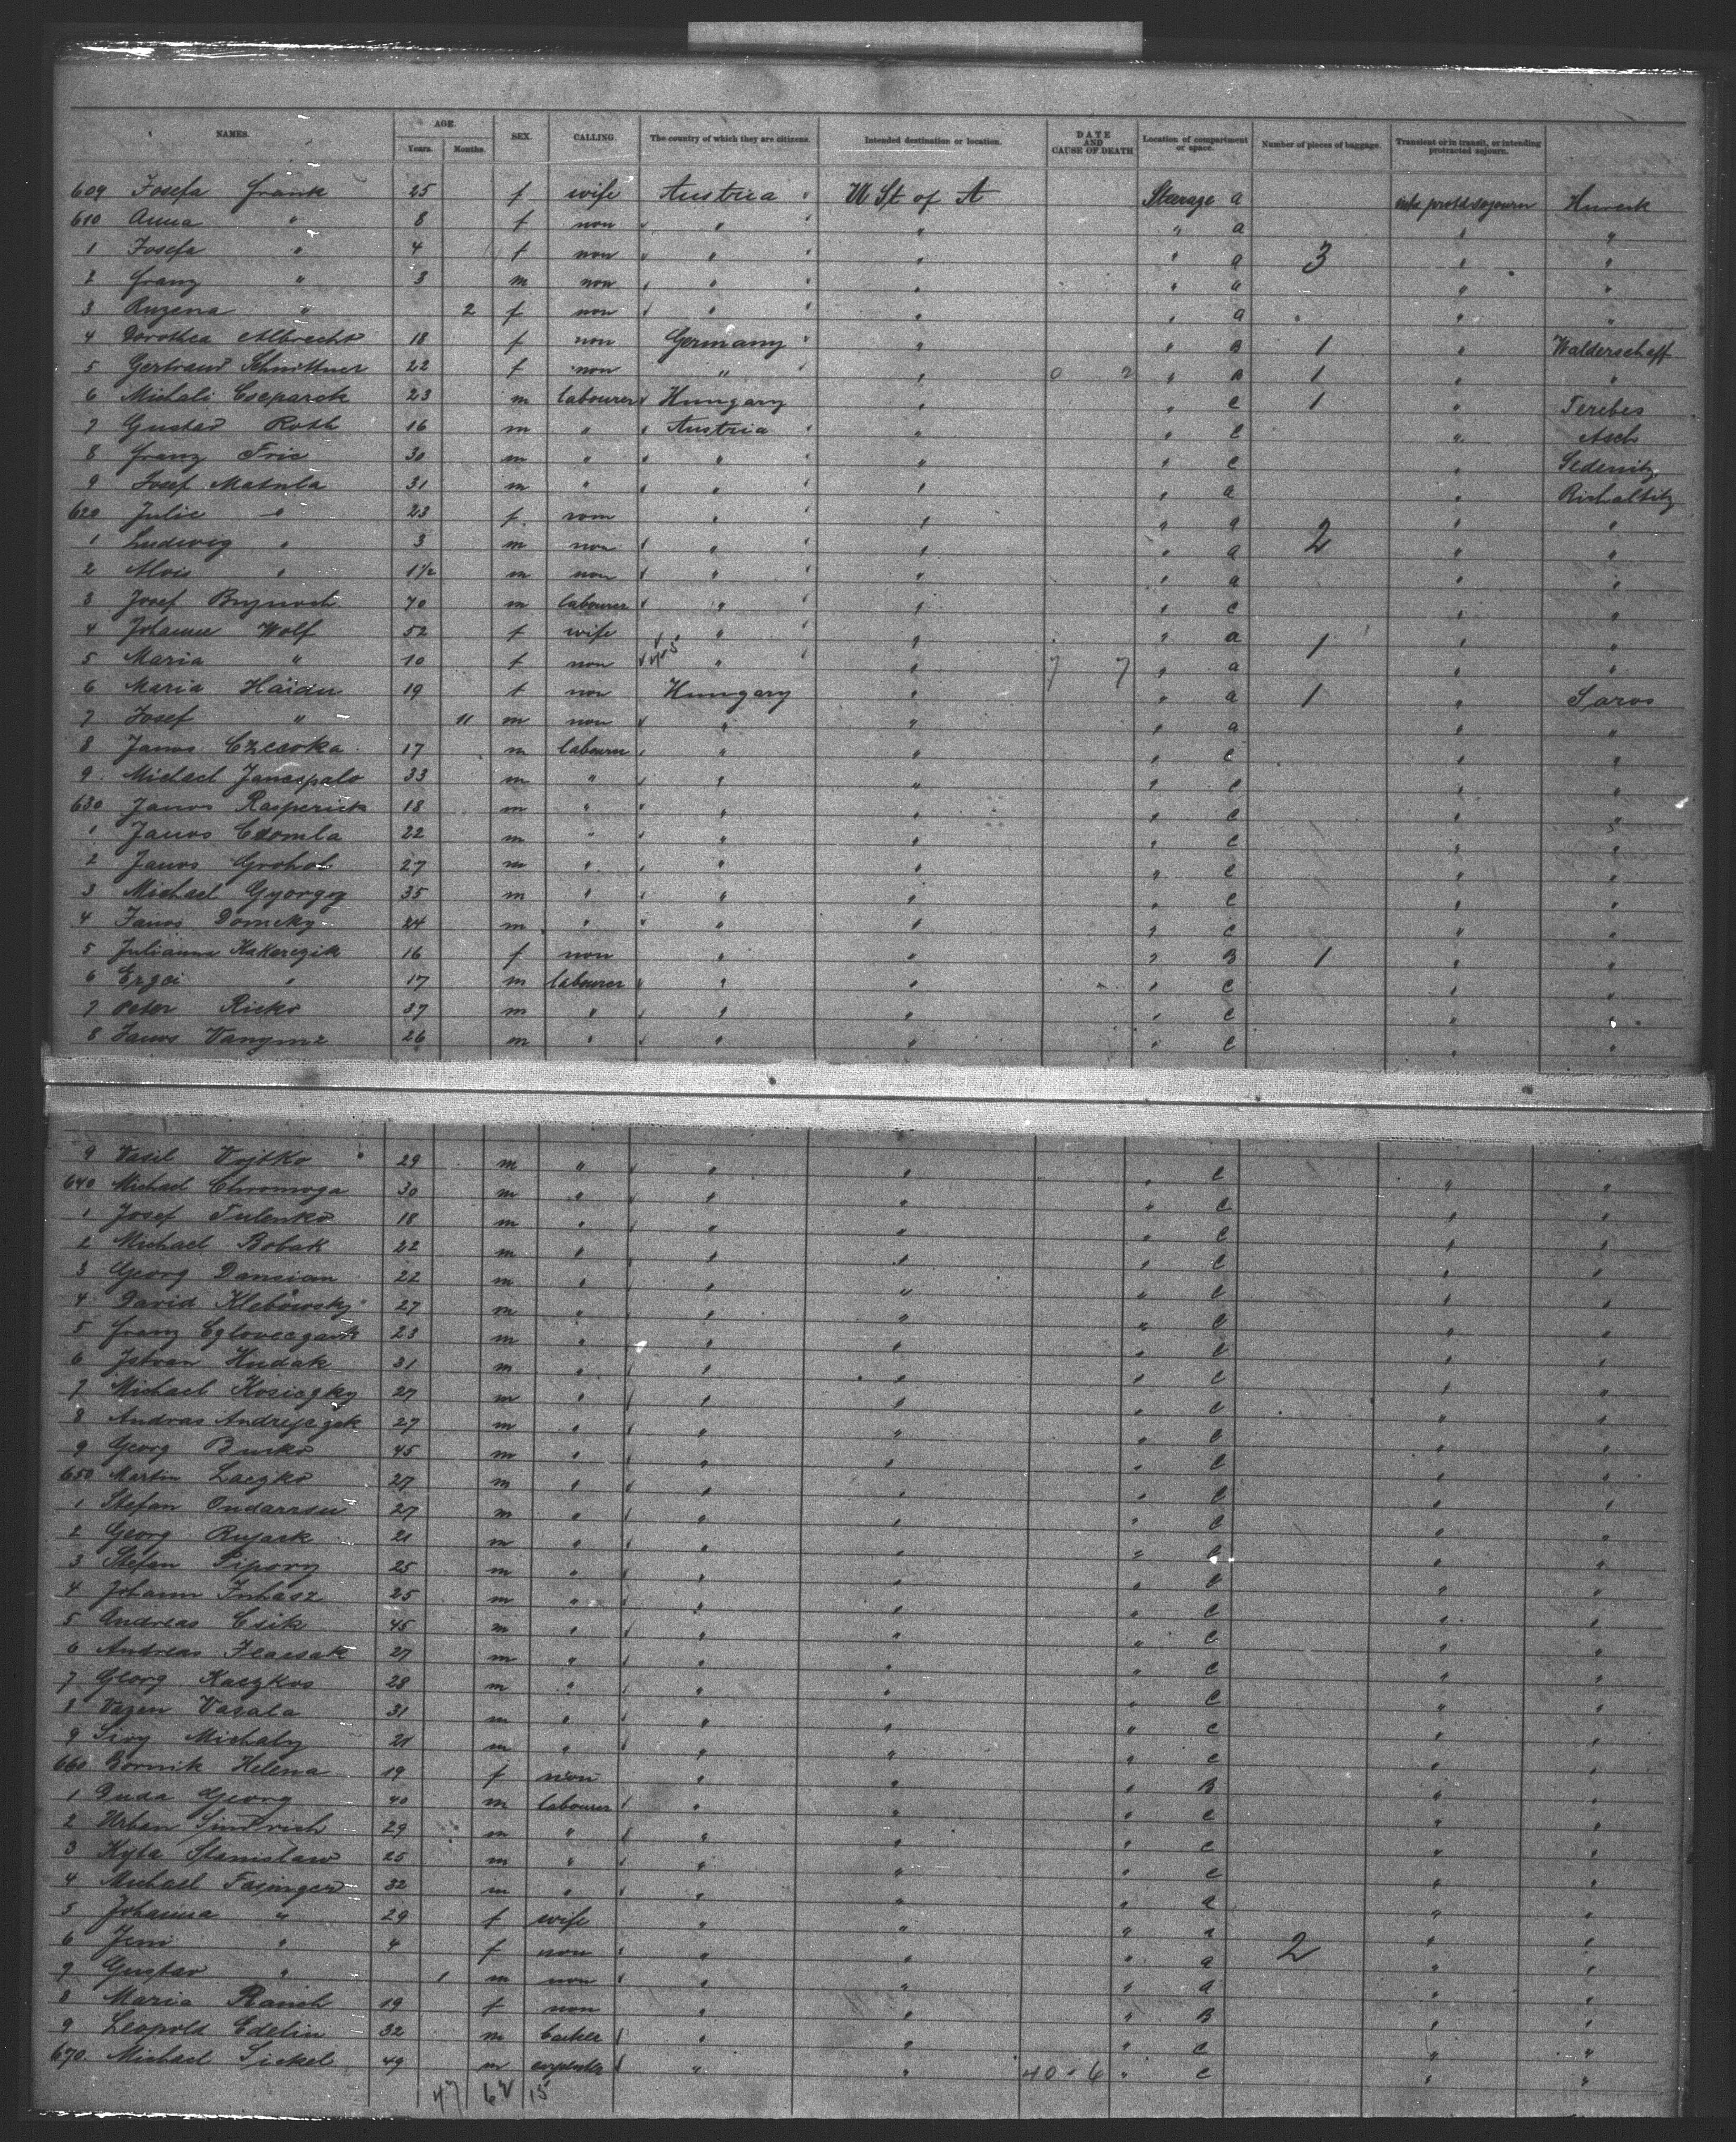 NAMES. AGE. Years. Months. SEX. CALLING. The country of which they are citizens. Intended destination or location. DATE AND CAUSE OF DEATH Location of compartment or space. Number of pieces of baggage. Transient or in transit, or intending protracted sojourn.
609 Josefa Frank 25 f wife Austria " U St of A Steerage a sojourn
610 Anna " 8 f non " " " a " "
1 Josefa " 4 f non " " " a 3 " "
2 Franz " 3 m non " " " a " "
3 Ruzena " 2 f non " " " a " "
4 Dorothea Albrecht 18 f non Germany " " B 1 "
5 Gertraud Schmittner 22 f non " " " B 1 " "
6 Michali Cseparck 23 m labourer Hungary " " C 1 " Terebes
7 Gustav Roth 16 m " Austria " " C " Asch
8 Franz Fric 30 m " " " " C "
9 Josef Matula 31 m " " " " a "
620 Julie " 23 f " " " a " "
1 Ludwig " 3 m non " " " a 2 " "
2 Alois " 1½ m non " " " a " "
3 Josef 70 m labourer " " " C " "
4 Johanna Wolf 52 f wife " " " a 1 " "
5 Maria " 10 f non " " 7 7 " a " "
6 Maria Haidu 19 f non Hungary " " a 1 " Saros
7 Josef " 11 m non " " " a " "
8 Janos 17 m labourer " " " C " "
9 Michael Janospalo 33 m " " " " C " "
630 Janos Rasperick 18 m " " " " C " "
1 Janos Csomla 22 m " " " " C " "
2 Janos Grohol 27 m " " " " C " "
3 Michael Gyorgy 35 m " " " " C " "
4 Janos Domcky 24 m " " " " C " "
5 Julianna Kakerczik 16 f non " " " B 1 " "
6 " 17 m labourer " " " C " "
7 Peter Ricko 37 m " " " " C " "
8 Janos 26 m " " " " C " "
9 Vasil Vojtko 29 m " " " " C " "
640 Michael 30 m " " " " C " "
1 Josef Tulenko 18 m " " " " C " "
2 Michael Bobak 22 m " " " " C " "
3 Georg Dancian 22 m " " " " C " "
4 David Klebowsky 27 m " " " " C " "
5 Franz 23 m " " " " C " "
6 Istvan Hudak 31 m " " " " C " "
7 Michael Kosiczky 27 m " " " " C " "
8 Andras Andrejczak 27 m " " " " C " "
9 Georg Burko 45 m " " " " C " "
650 Martin Laczko 27 m " " " " C " "
1 Stefan 27 m " " " " C " "
2 Georg Rusack 21 m " " " " C " "
3 Stefan Pipory 25 m " " " " C " "
4 Johann Juhasz 25 m " " " " C " "
5 Andreas Csik 45 m " " " " C " "
6 Andreas 27 m " " " " C " "
7 Georg Kaczkos 28 m " " " " C " "
8 Vazen Vasala 31 m " " " " C " "
9 Siry Michaly 21 m " " " " C " "
660 Bornik Helena 19 f non " " " B " "
1 Duda Georg 40 m labourer " " " C " "
2 Urban Jindrich 29 m " " " " C " "
3 Kyta Stanislaw 25 m " " " " C " "
4 Michael Fasinger 32 m " " " " a " "
5 Johanna " 29 f wife " " " a " "
6 Jeni " 4 f non " " " a 2 " "
7 Gustav " 1 m non " " " a " "
8 Maria Ranich 19 f non " " " B " "
9 Leopold Edelin 32 m " " " C " "
670. Michael Sickel 49 m carpenter " " 40 - 6 " C " "
47 62 15